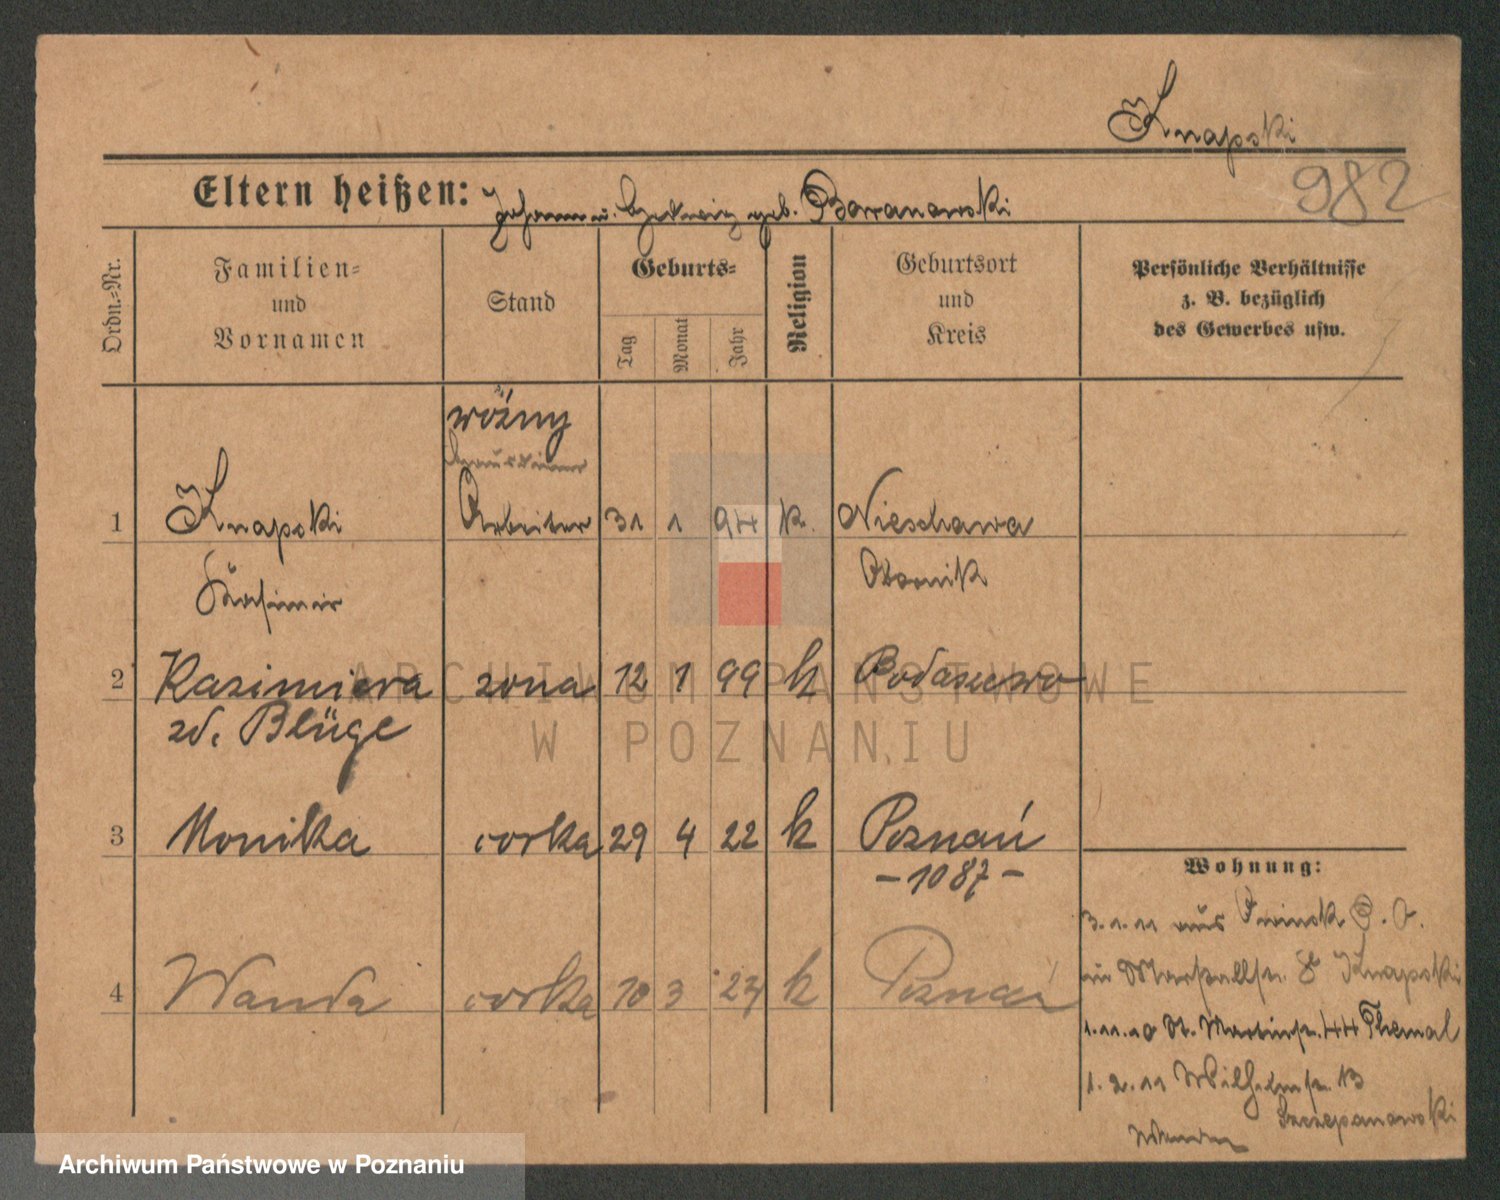 Knapski
982
Eltern heißen: Johann u. Hedwig geb. Baranowski
Ordn.-Nr.
Familien- und Vornamen
Stand
Geburts-
Tag
Monat
Jahr
Religion
Geburtsort und Kreis
Persönliche Verhältnisse z. B. bezüglich des Gewerbes usw.
woźny
1 Knapski Arbeiter 31 1 94 k. Nieschawa
Kasimir Obornik
2 Kazimiera zona 12 1 99 k
zd. Blüge
3 Monika corka 29 4 22 k Poznań
- 1087 -
4 Wanda corka 10 3 k Poznań
Wohnung:
3.1.11 aus Owinsk
Knapski
St. Martinstr. 44
1.2.11 Wilhelmstr. 13
Szczepanowski
ARCHIWUM PAŃSTWOWE
W POZNANIU
Archiwum Państwowe w Poznaniu